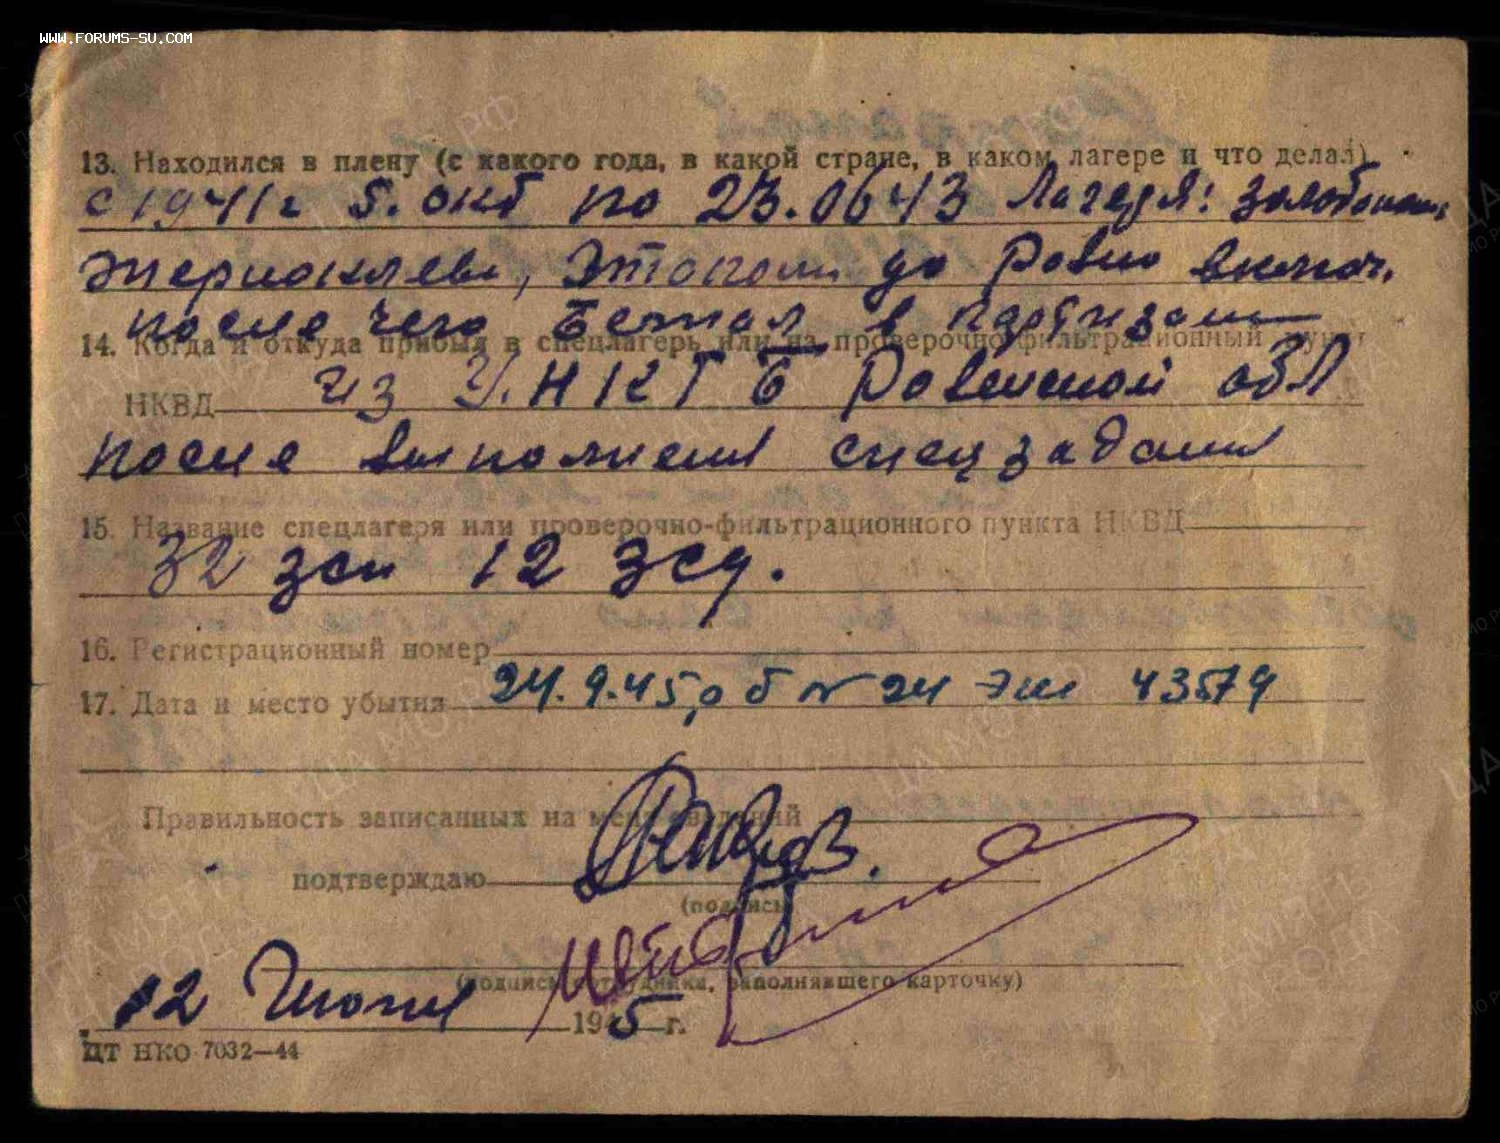 WWW.FORUMS-SU.COM
13. Находился в плену (с какого года, в какой стране, в каком лагере и что делал)
с 1941 г 5. окт по 23.06 43 Лагеря:
Этапом до Ровно включ.
после чего Бежал в партизаны
14. Когда и откуда прибыл в спецлагерь или на проверочно-фильтрационный пункт
НКВД из У.НКГБ Ровенской обл
после выполнения спецзадания
15. Название спецлагеря или проверочно-фильтрационного пункта НКВД
32 зсп 12 зсд.
16. Регистрационный номер
17. Дата и место убытия 24.9.45 об № 24 эш 43579
Правильность записанных на меня сведений
подтверждаю
(подпись)
(подпись сотрудника, заполнявшего карточку)
12 Июня 1945 г.
ЦТ НКО 7032—44